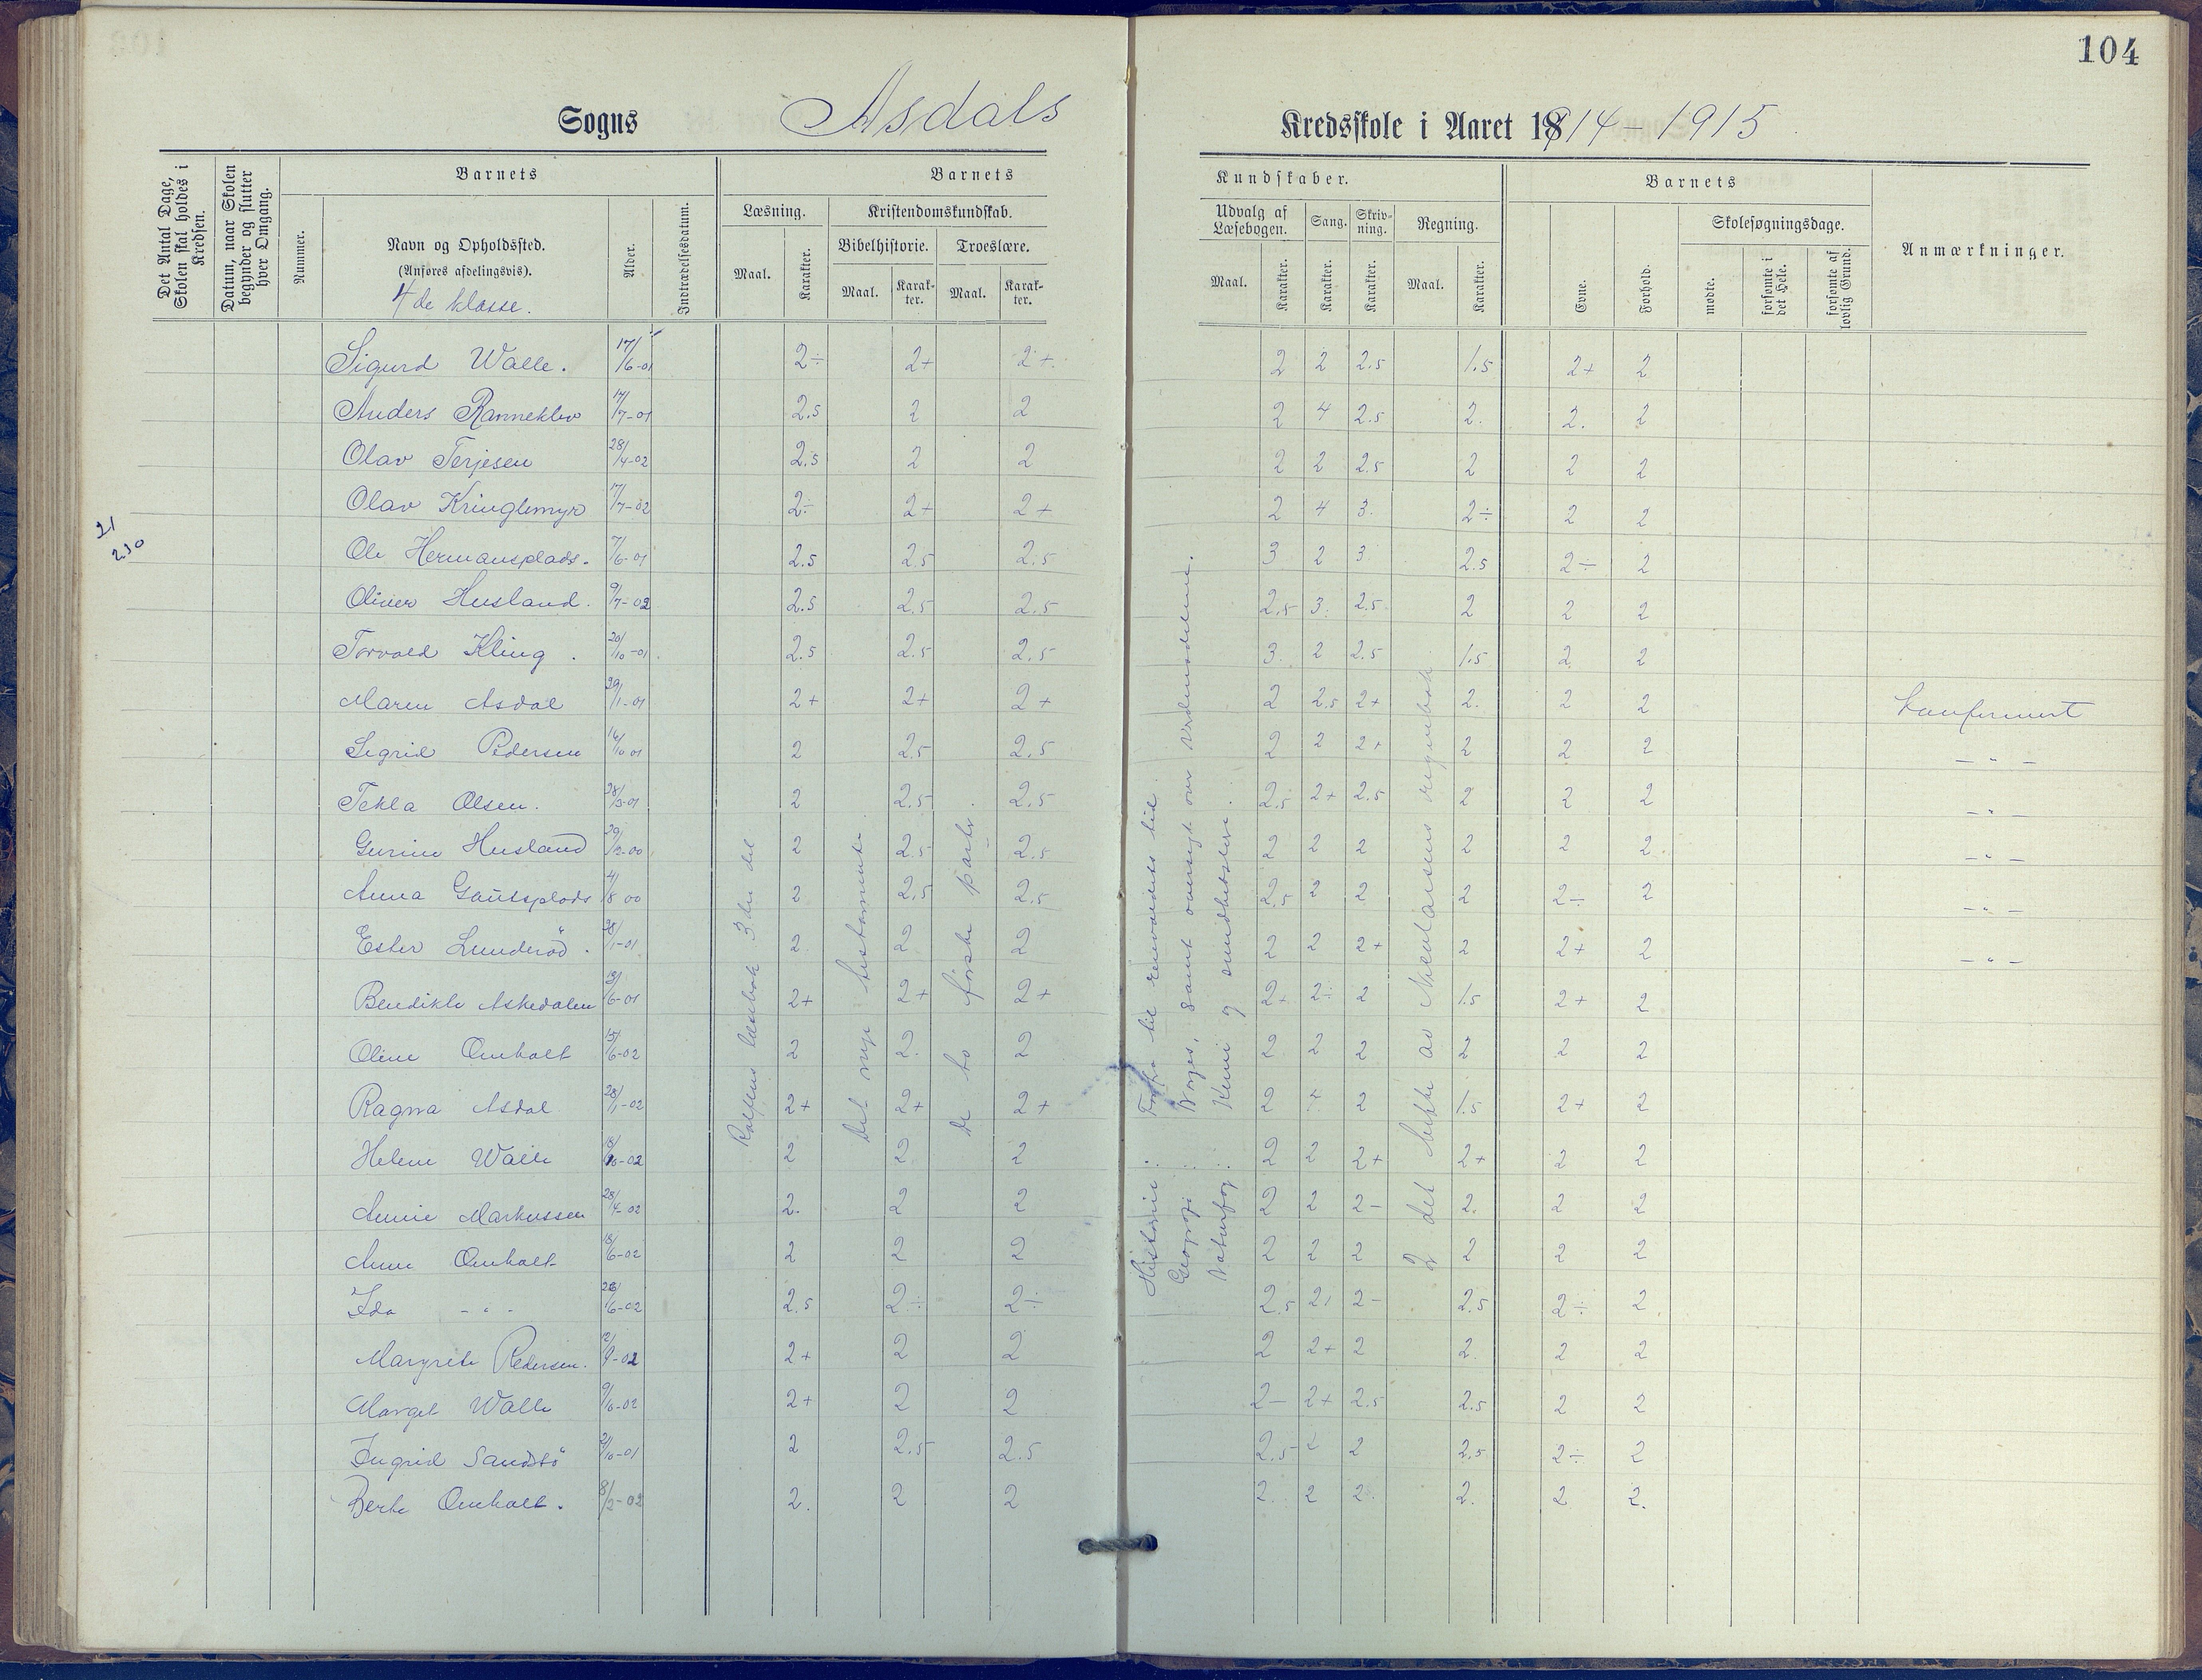 104
Sogns Asdals Kredsskole i Aaret 1914-1915
Det Antal Dage, Skolen skal holdes i Kredsen.
Datum, naar Skolen begynder og slutter hver Omgang.
Barnets
Nummer.
Navn og Opholdssted.
(Anføres afdelingsvis).
4de klasse.
Alder.
Indtrædelsesdatum.
Barnets Kundskaber.
Læsning.
Maal.
Karakter.
Kristendomskundskab.
Bibelhistorie.
Maal.
Karakter.
Troeslære.
Maal.
Karakter.
Udvalg af Læsebogen.
Maal.
Karakter.
Sang.
Karakter.
Skrivning.
Karakter.
Regning.
Maal.
Karakter.
Barnets
Evne.
Forhold.
Skolesøgningsdage.
mødte.
forsømte i det Hele.
forsømte af lovlig Grund.
Anmærkninger.
Sigurd Walle. 17/6-01 2÷ 2+ 2+ 2 2 2.5 1.5 2+ 2
Anders Ranneklev 17/7-01 2.5 2 2 2 4 2.5 2. 2. 2
Olav Terjesen 28/4-02 2.5 2 2 2 2 2.5 2 2 2
Olav Kringlemyr 17/7-02 2÷ 2+ 2+ 2 4 3. 2÷ 2 2
21
230
Ole Hermansplads. 7/6-01 2.5 2.5 2.5 3 2 3 2.5 2÷ 2
Oliver Husland. 9/7-02 2.5 2.5 2.5 2.5 3. 2.5 2 2 2
Torvald Kling. 20/10-01 2.5 2.5 2.5 3. 2 2.5 1.5 2 2
Maren Asdal 29/1-01 2+ 2+ 2+ 2 2.5 2+ 2. 2 2 Konfirmert
Sigrid Pedersen 16/10 01 2 2.5 2.5 2 2 2+ 2 2 2 - " -
Tekla Olsen. 28/3-01 2 2.5 2.5 2.5 2+ 2.5 2 2 2 - " -
Gurine Husland 29/12-00 2 2.5 2.5 2 2 2 2 2 2. - " -
Anna Gautsplads 4/8 00 2 2.5 2.5 2.5 2 2 2 2÷ 2 - " -
Ester Lunderöd. 28/1-01 2. 2 2 2 2 2+ 2 2+ 2 - " -
Bendikte Askedalen 13/6-01 2+ 2+ 2+ 2+ 2÷ 2 1.5 2+ 2
Oline Omholt 15/6-02 2 2. 2 2 2 2 2 2 2
Ragna Asdal 28/1-02 2+ 2+ 2+ 2 + 2 1.5 2+ 2
Helene Walle 2 2 2 2 2 2+ 2+ 2 2
Annie Markussen 28/4-02 2. 2 2 2 2 2- 2. 2 2
Anne Omholt 18/6-02 2 2 2 2 2 2 2 2 2
Ida - " - 26/6-02 2.5 2÷ 2÷ 2.5 2- 2.5 2÷ 2
Margrete Pedersen. 12/9-02 2+ 2 2 2 2+ 2 2. 2 2
Marget Walle 9/6-02 2+ 2 2 2- 2+ 2.5 2.5 2 2
Ingrid Sandbö 2/10-01 2 2.5 2.5 2.5 2 2 2.5 2÷ 2
Berte Omholt. 8/2-02 2. 2 2 2. 2 2. 2. 2 2.
Rolfsens læsebok 3die del
Det nye testamente.
De to første parter.
Historie: Fra til renæssancens tid
Geografi: Norges, samt oversigt over verdensdelene.
Naturfag: Kemi og sundhetslære.
2 det hefte av Nicolaisens regnebok